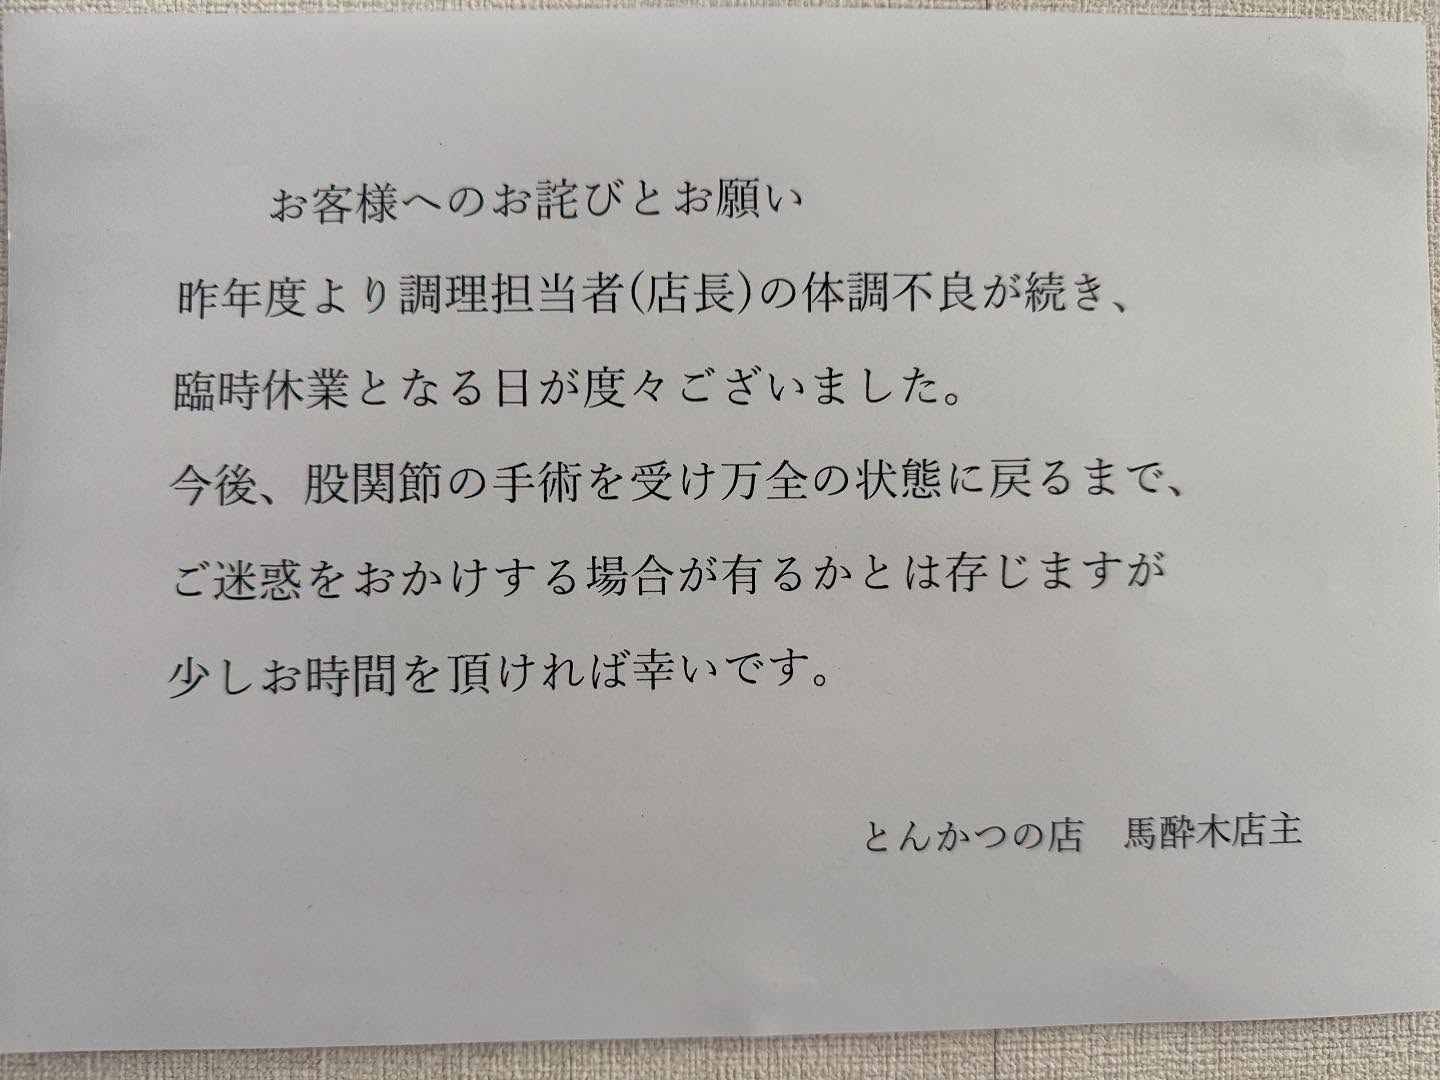 お客様へのお詫びとお願い
昨年度より調理担当者(店長)の体調不良が続き、
臨時休業となる日が度々ございました。
今後、股関節の手術を受け万全の状態に戻るまで、
ご迷惑をおかけする場合が有るかとは存じますが
少しお時間を頂ければ幸いです。
とんかつの店　馬酔木店主